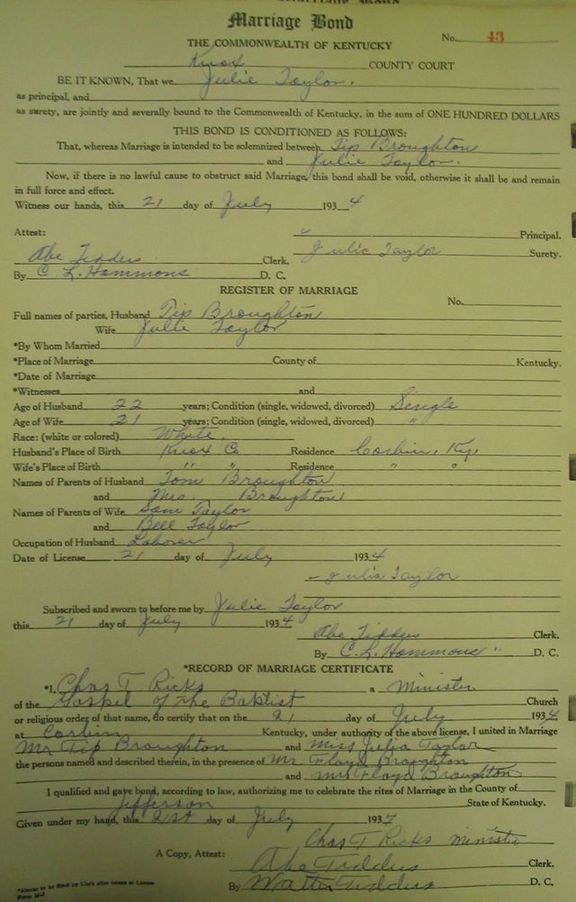 Marriage Bond
No. 43
THE COMMONWEALTH OF KENTUCKY
Knox COUNTY COURT
BE IT KNOWN, That we Julie Taylor.
as principal, and
as surety, are jointly and severally bound to the Commonwealth of Kentucky, in the sum of ONE HUNDRED DOLLARS
THIS BOND IS CONDITIONED AS FOLLOWS:
That, whereas Marriage is intended to be solemnized between Tip Broughton
and Julie Taylor.
Now, if there is no lawful cause to obstruct said Marriage, this bond shall be void, otherwise it shall be and remain
in full force and effect.
Witness our hands, this 21 day of July 1934
Attest: Principal.
Abe Tidders Clerk. Julia Taylor Surety.
By C L. Hammons D. C.
REGISTER OF MARRIAGE
No.
Full names of parties, Husband Tip Broughton
Wife Julie Taylor
*By Whom Married
*Place of Marriage County of Kentucky.
*Date of Marriage
*Witnesses and
Age of Husband 22 years; Condition (single, widowed, divorced) Single
Age of Wife 21 years; Condition (single, widowed, divorced) "
Race: (white or colored) White
Husband's Place of Birth Knox Co Residence Corbin, Ky.
Wife's Place of Birth " " Residence " "
Names of Parents of Husband Tom Broughton
and Mrs. Broughton
Names of Parents of Wife Sam Taylor
and Bell Taylor
Occupation of Husband Laborer
Date of License 21 day of July 1934
Julia Taylor
Subscribed and sworn to before me by Julie Taylor
this 21 day of July 1934
Abe Tidders Clerk.
By C. L. Hammons " D. C.
*RECORD OF MARRIAGE CERTIFICATE
*I, Chas T Ricks a Minister
of the Gospel of the Baptist Church
or religious order of that name, do certify that on the 21 day of July 1934
at Corbin Kentucky, under authority of the above license, I united in Marriage
Mr Tip Broughton and Miss Julia Taylor
the persons named and described therein, in the presence of Mr Floyd Broughton
and Mrs Floyd Broughton
I qualified and gave bond, according to law, authorizing me to celebrate the rites of Marriage in the County of
Jefferson State of Kentucky.
Given under my hand, this 21st day of July 1934
Chas T Ricks Minister
A Copy, Attest: Abe Tidders Clerk.
By Walter Tidders D. C.